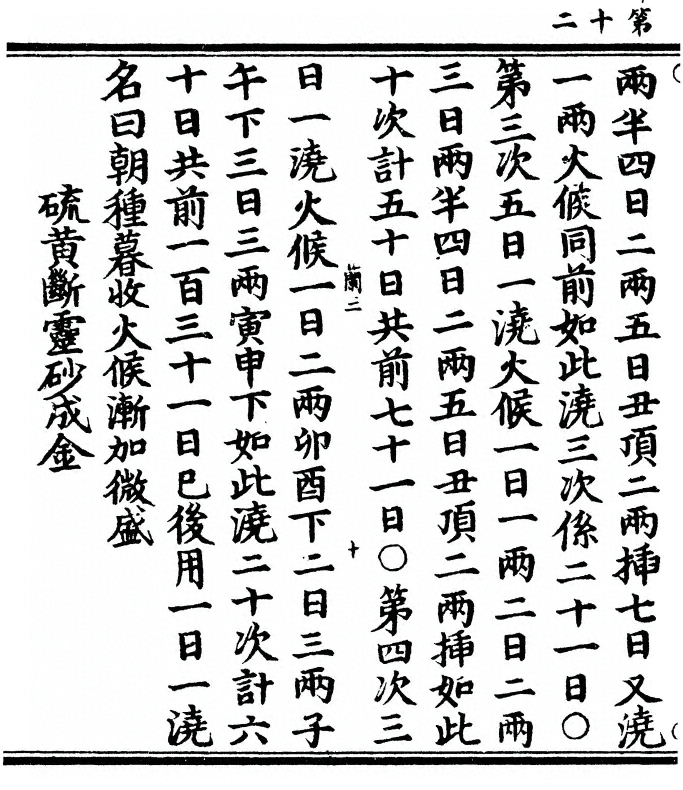 第十二
兩半四日二兩五日丑頂二兩揷七日又澆
一兩火候同前如此澆三次係二十一日○
第三次五日一澆火候一日一兩二日二兩
三日兩半四日二兩五日丑頂二兩揷如此
十次計五十日共前七十一日○第四次三
蘭二
十
日一澆火候一日二兩卯酉下二日三兩子
午下三日三兩寅申下如此澆二十次計六
十日共前一百三十一日巳後用一日一澆
名曰朝種暮收火候漸加微盛
硫黄斷靈砂成金